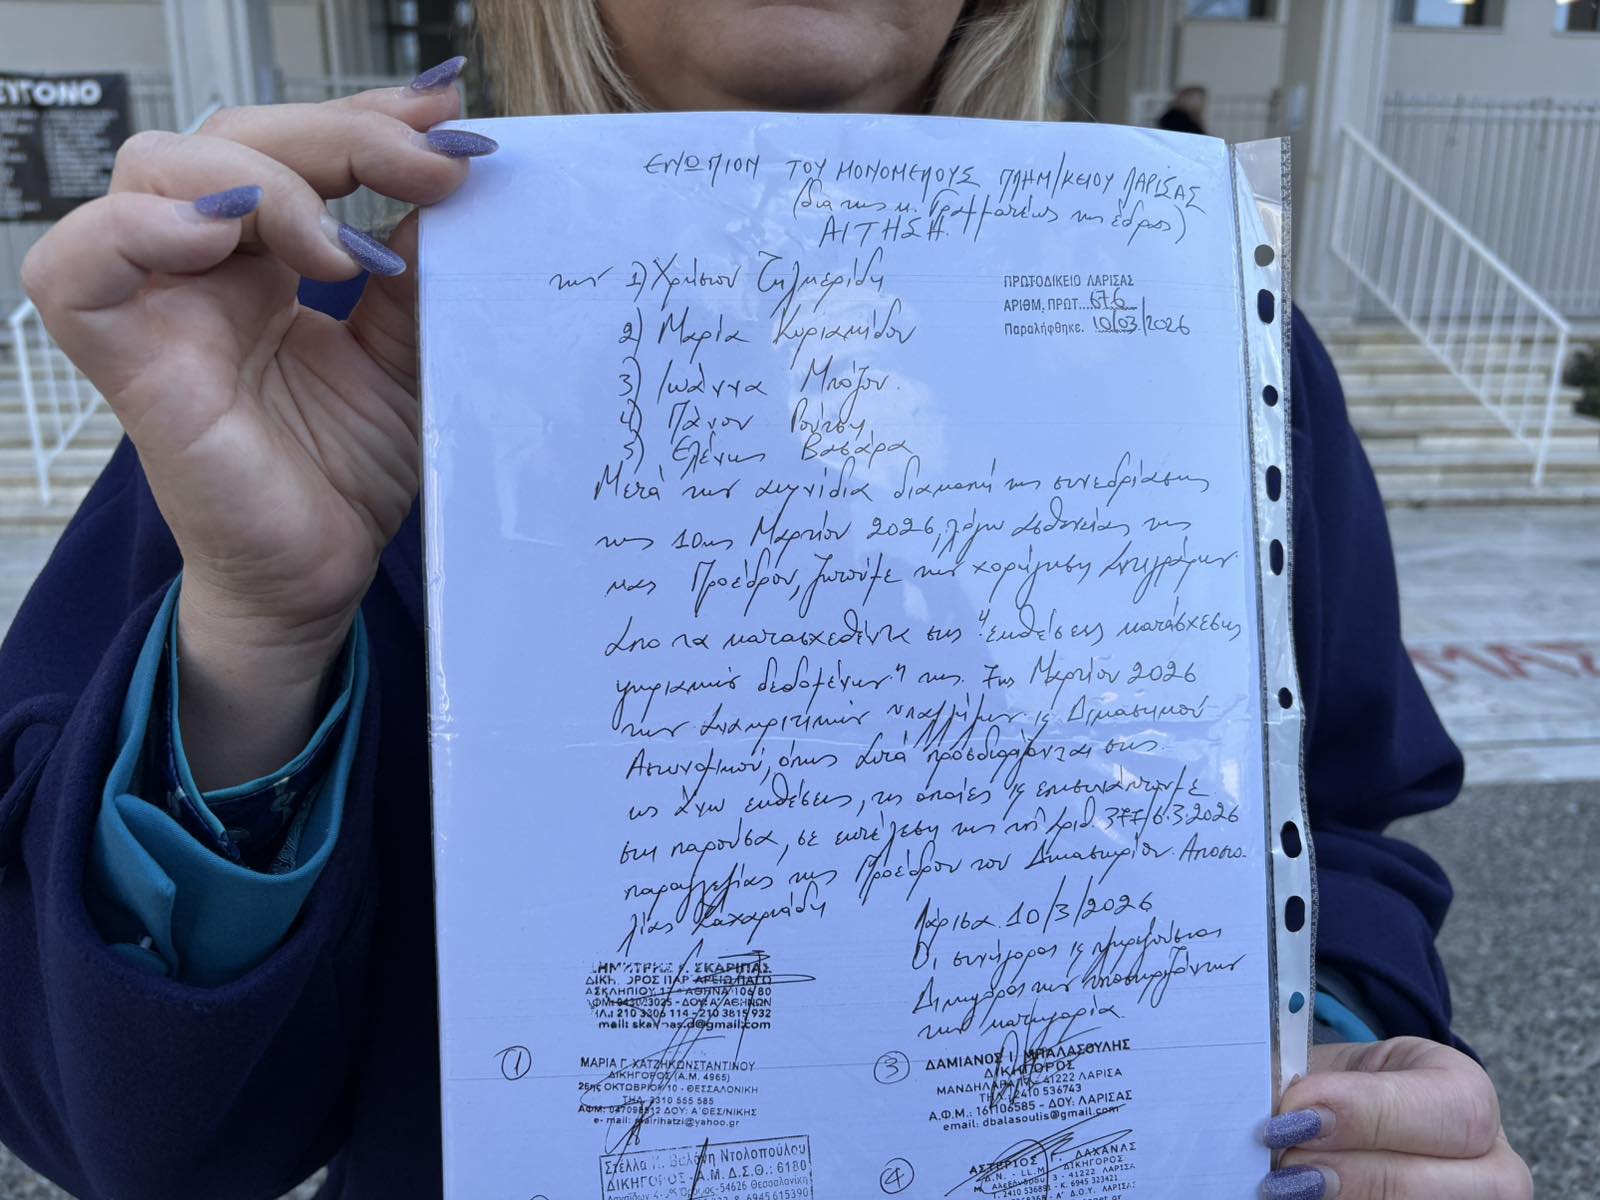 ΕΝΩΠΙΟΝ ΤΟΥ ΜΟΝΟΜΕΛΟΥΣ ΠΛΗΜ/ΚΕΙΟΥ ΛΑΡΙΣΑΣ
(δια της κ. Γραμματέως της έδρας)
ΑΙΤΗΣΗ
των 1) Χρήστου Τηλκερίδη
ΠΡΩΤΟΔΙΚΕΙΟ ΛΑΡΙΣΑΣ
ΑΡΙΘΜ. ΠΡΩΤ. 676
Παραλήφθηκε. 10/03/2026
2) Μαρία Κυριακίδου
3) Ιωάννα Μπόζου.
4) Πάνου Ρούτση
5) Ελένης Βασάρα
Μετά την αιφνίδια διακοπή της συνεδρίασης
της 10ης Μαρτίου 2026, λόγω ασθενείας της
κας Προέδρου, ζητούμε την χορήγηση αντιγράφων
από τα κατασχεθέντα στις "Εκθέσεις κατάσχεσης
ψηφιακών δεδομένων" της 7ης Μαρτίου 2026
των Ανακριτικών υπαλλήλων κ Δικαστικού
Αστυνομικού, όπως αυτά προσδιορίζονται στις
ως άνω εκθέσεις, τις οποίες κ επισυνάπτουμε
στη παρούσα, σε εκτέλεση της υπ' αριθ. 377/6.3.2026
παραγγελίας της Προέδρου του Δικαστηρίου Αποστο-
λίας Ζαχαριάδη
Λάρισα 10/3/2026
Οι συνήγορος κ πληρεξούσιος
Δικηγόρος των υποστηριζόντων
την κατηγορία.
ΔΗΜΗΤΡΗΣ ΣΚΑΡΙΠΑΣ
ΔΙΚΗΓΟΡΟΣ ΠΑΡ' ΑΡΕΙΩ ΠΑΓΩ
ΑΣΚΛΗΠΙΟΥ ΑΘΗΝΑ 106 80
ΔΟΥ: Α' ΑΘΗΝΩΝ
210 3306 114 - 210 3815 932
①
ΜΑΡΙΑ Γ. ΧΑΤΖΗΚΩΝΣΤΑΝΤΙΝΟΥ
ΔΙΚΗΓΟΡΟΣ (Α.Μ. 4965)
26ης ΟΚΤΩΒΡΙΟΥ 10 - ΘΕΣΣΑΛΟΝΙΚΗ
ΤΗΛ. 2310 555 585
ΔΟΥ: Α' ΘΕΣ/ΝΙΚΗΣ
e-mail: mairihatzi@yahoo.gr
③
ΔΑΜΙΑΝΟΣ Ι. ΜΠΑΛΑΣΟΥΛΗΣ
ΔΙΚΗΓΟΡΟΣ
ΜΑΝΔΗΛΑΡΑ 41222 ΛΑΡΙΣΑ
ΤΗΛ. 2410 536743
Α.Φ.Μ.: 161106585 - ΔΟΥ: ΛΑΡΙΣΑΣ
email: dbalasoulis@gmail.com
Στέλλα Βαλάνη Ντολοπούλου
ΔΙΚΗΓΟΡΟΣ - Α.Μ.Δ.Σ.Θ.: 6180
54626 Θεσσαλονίκη
6945 615390
④
ΑΣΤΕΡΙΟΣ Γ. ΔΑΧΑΝΑΣ
Δ.Ν. - LL.M. ΔΙΚΗΓΟΡΟΣ
3 - 41222 ΛΑΡΙΣΑ
Κ. 6945 323421
Α' Δ.Ο.Υ. ΛΑΡΙΣ